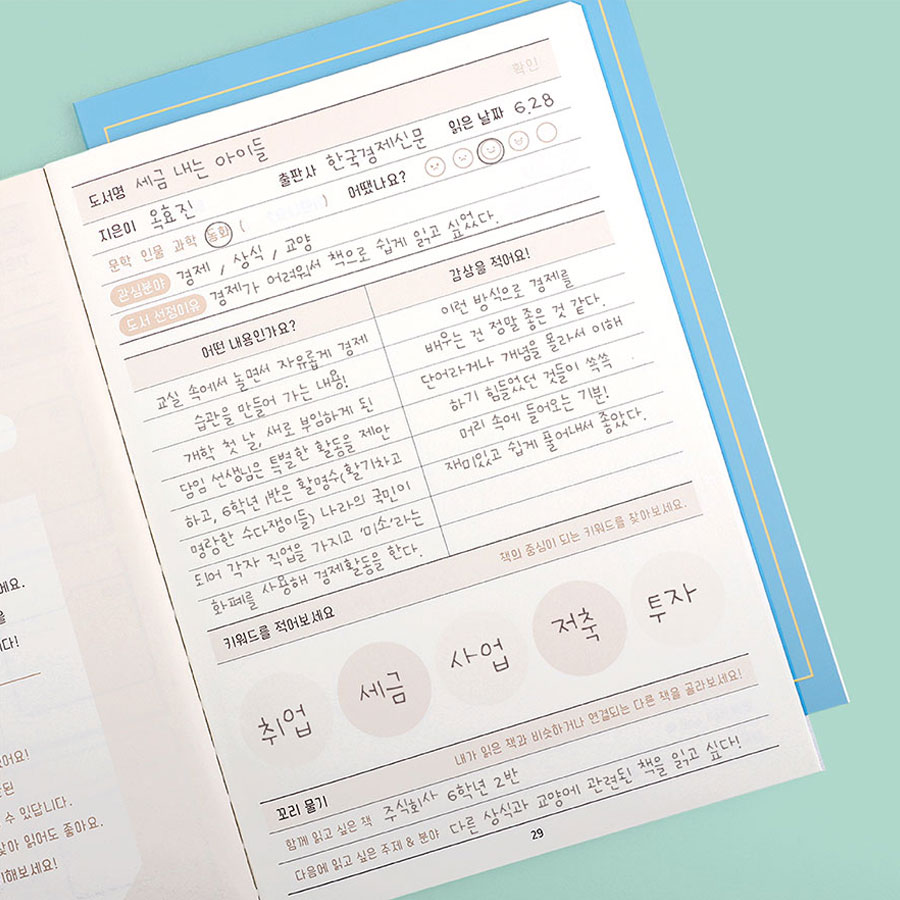 확인
도서명 세금 내는 아이들
지은이 옥효진 출판사 한국경제신문 읽은 날짜 6.28
문학 인물 과학 동화 ( ) 어땠나요?
관심분야 경제 / 상식 / 교양
도서 선정이유 경제가 어려워서 책으로 쉽게 읽고 싶었다.
어떤 내용인가요?
교실 속에서 놀면서 자유롭게 경제
습관을 만들어 가는 내용!
개학 첫 날, 새로 부임하게 된
담임 선생님은 특별한 활동을 제안
하고, 6학년 1반은 활명수(활기차고
명랑한 수다쟁이들) 나라의 국민이
되어 각자 직업을 가지고 '미소'라는
화폐를 사용해 경제활동을 한다.
감상을 적어요!
이런 방식으로 경제를
배우는 건 정말 좋은 것 같다.
단어라거나 개념을 몰라서 이해
하기 힘들었던 것들이 쏙쏙
머리 속에 들어오는 기분!
재미있고 쉽게 풀어내서 좋았다.
키워드를 적어보세요 책의 중심이 되는 키워드를 찾아보세요.
취업 세금 사업 저축 투자
꼬리 물기 내가 읽은 책과 비슷하거나 연결되는 다른 책을 골라보세요!
함께 읽고 싶은 책 주식회사 6학년 2반
다음에 읽고 싶은 주제 & 분야 다른 상식과 교양에 관련된 책을 읽고 싶다!
29
에요.
을
니다!
있어요!
수 있답니다.
찾아 읽어도 좋아요.
해보세요!